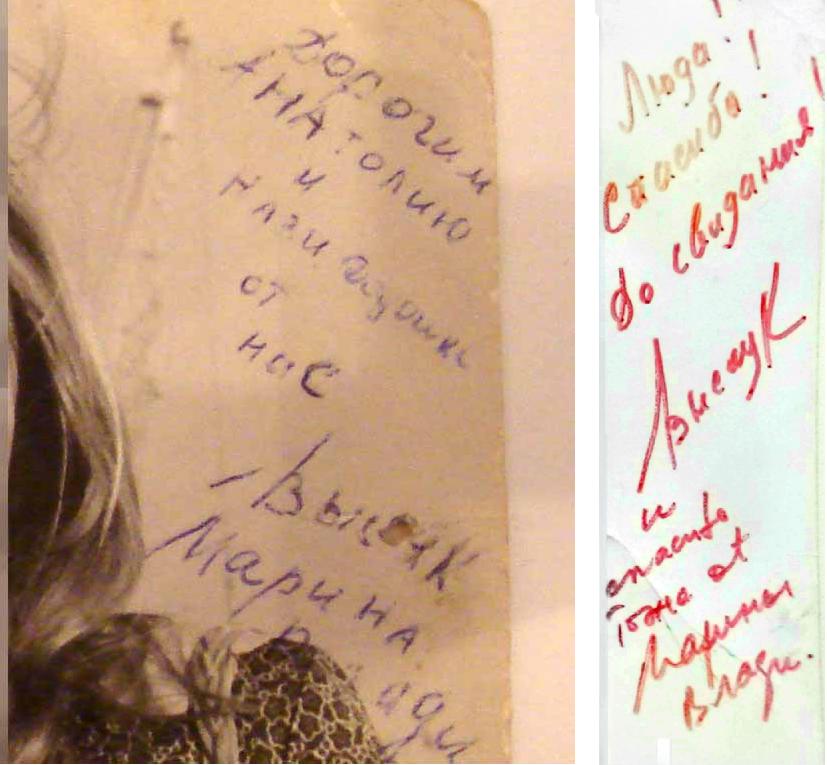 Дорогим
Анатолию
и
от
нас
Высоцк
Марина
Влади
Люда!
Спасибо!
До свидания!
Высоцк
и
спасибо
тоже от
Марины
Влади.